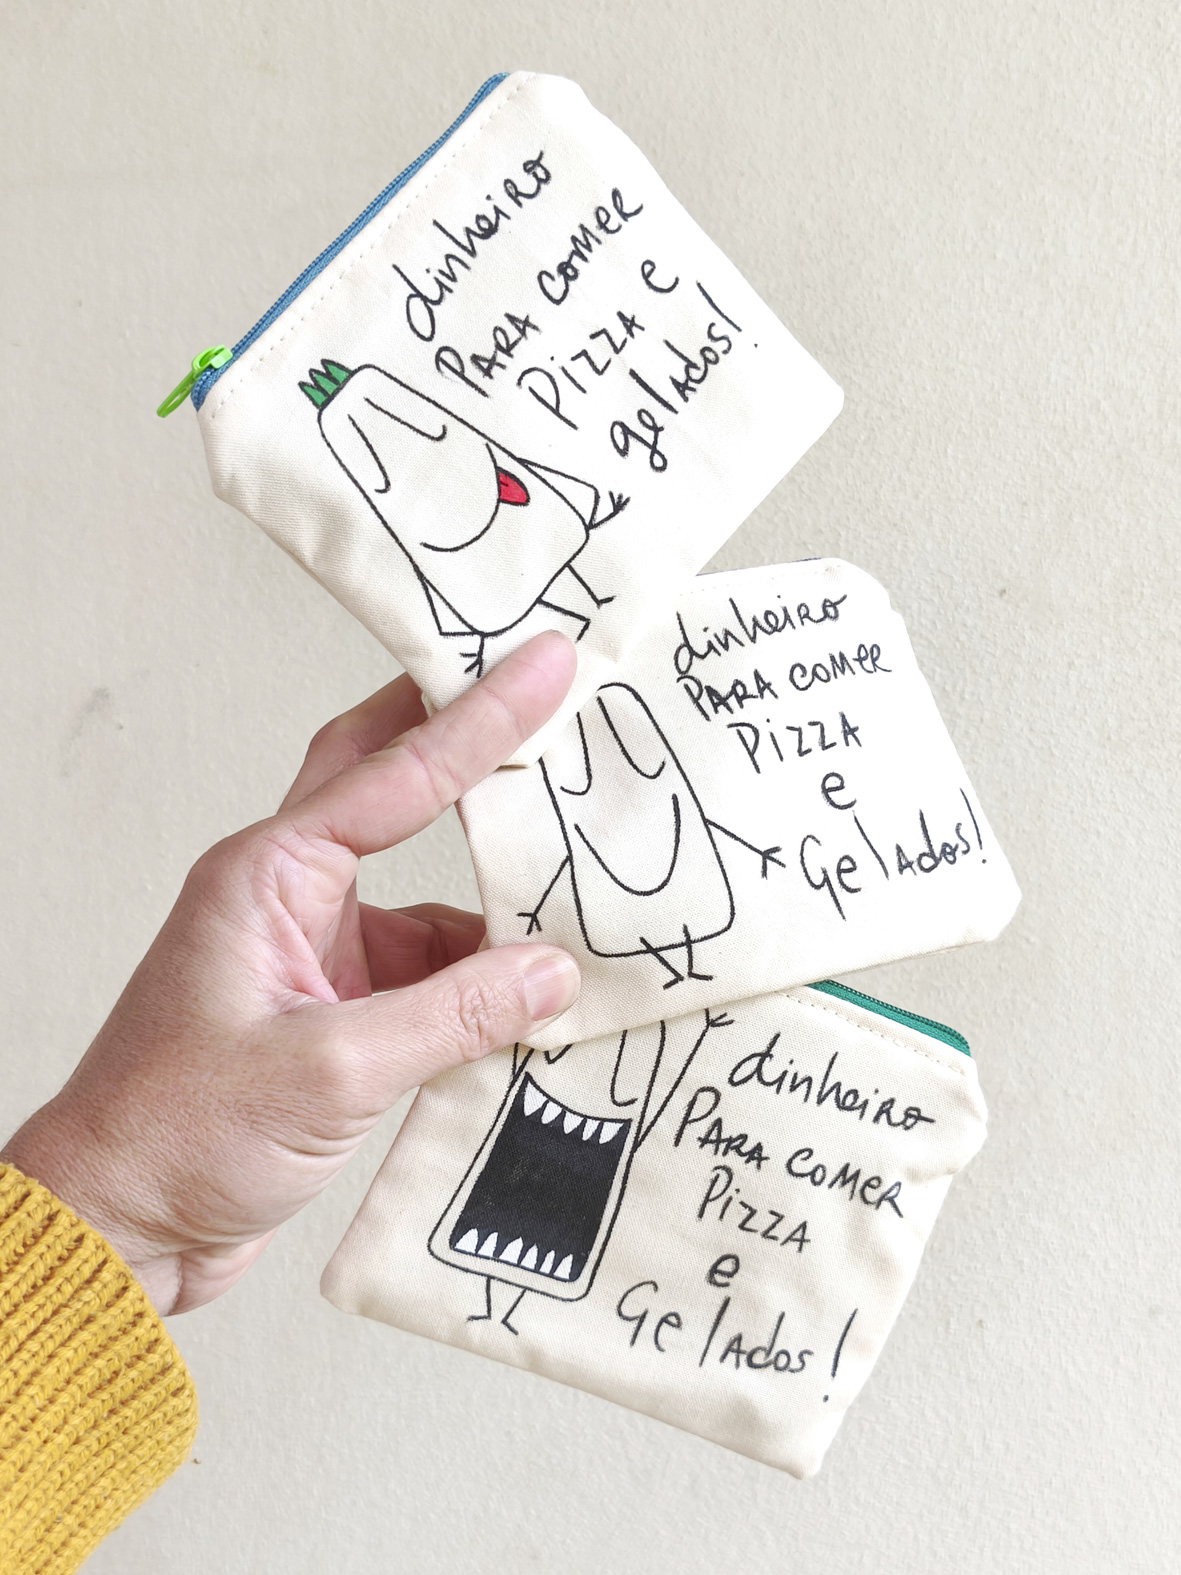 dinheiro
PARA comER
PizzA e
gelAdos!
dinheiro
PARA comER
PizzA
e
GelAdos!
dinheiro
PARA comER
PizzA
e
GelAdos!